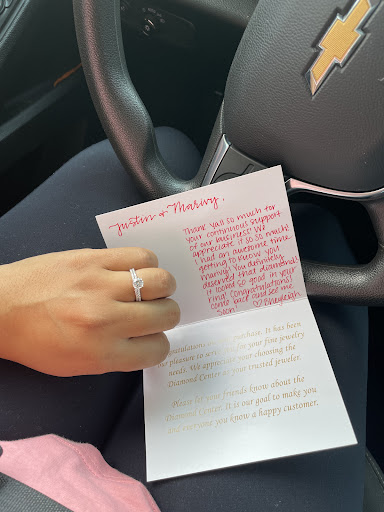 Justin & Marivy,
Thank yall so much for
your continuous support
of our business! We
appreciate it so so much!
I had an awesome time
getting to know you
Marivy! You definitely
deserved those diamonds!
It looked so good in your
ring! Congratulations!
Come back and see me
soon! ♡ Rhyleigh
purchase. It has been
our pleasure to your fine jewelry
needs. We appreciate your choosing the
Diamond Center as your trusted jeweler.
Please let your friends know about the
Diamond Center. It is our goal to make you
and everyone you know a happy customer.